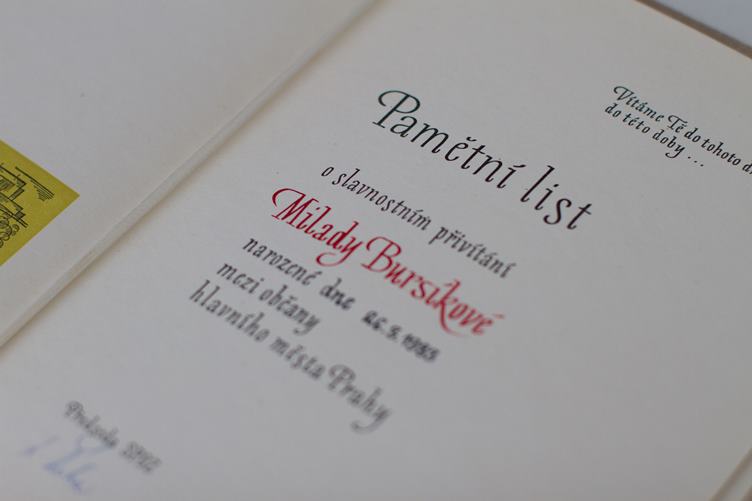 Vítáme Tě do tohoto
do této doby ...
Pamětní list
o slavnostním přivítání
Milady Bursíkové
narozené dne
mezi občany
hlavního města Prahy